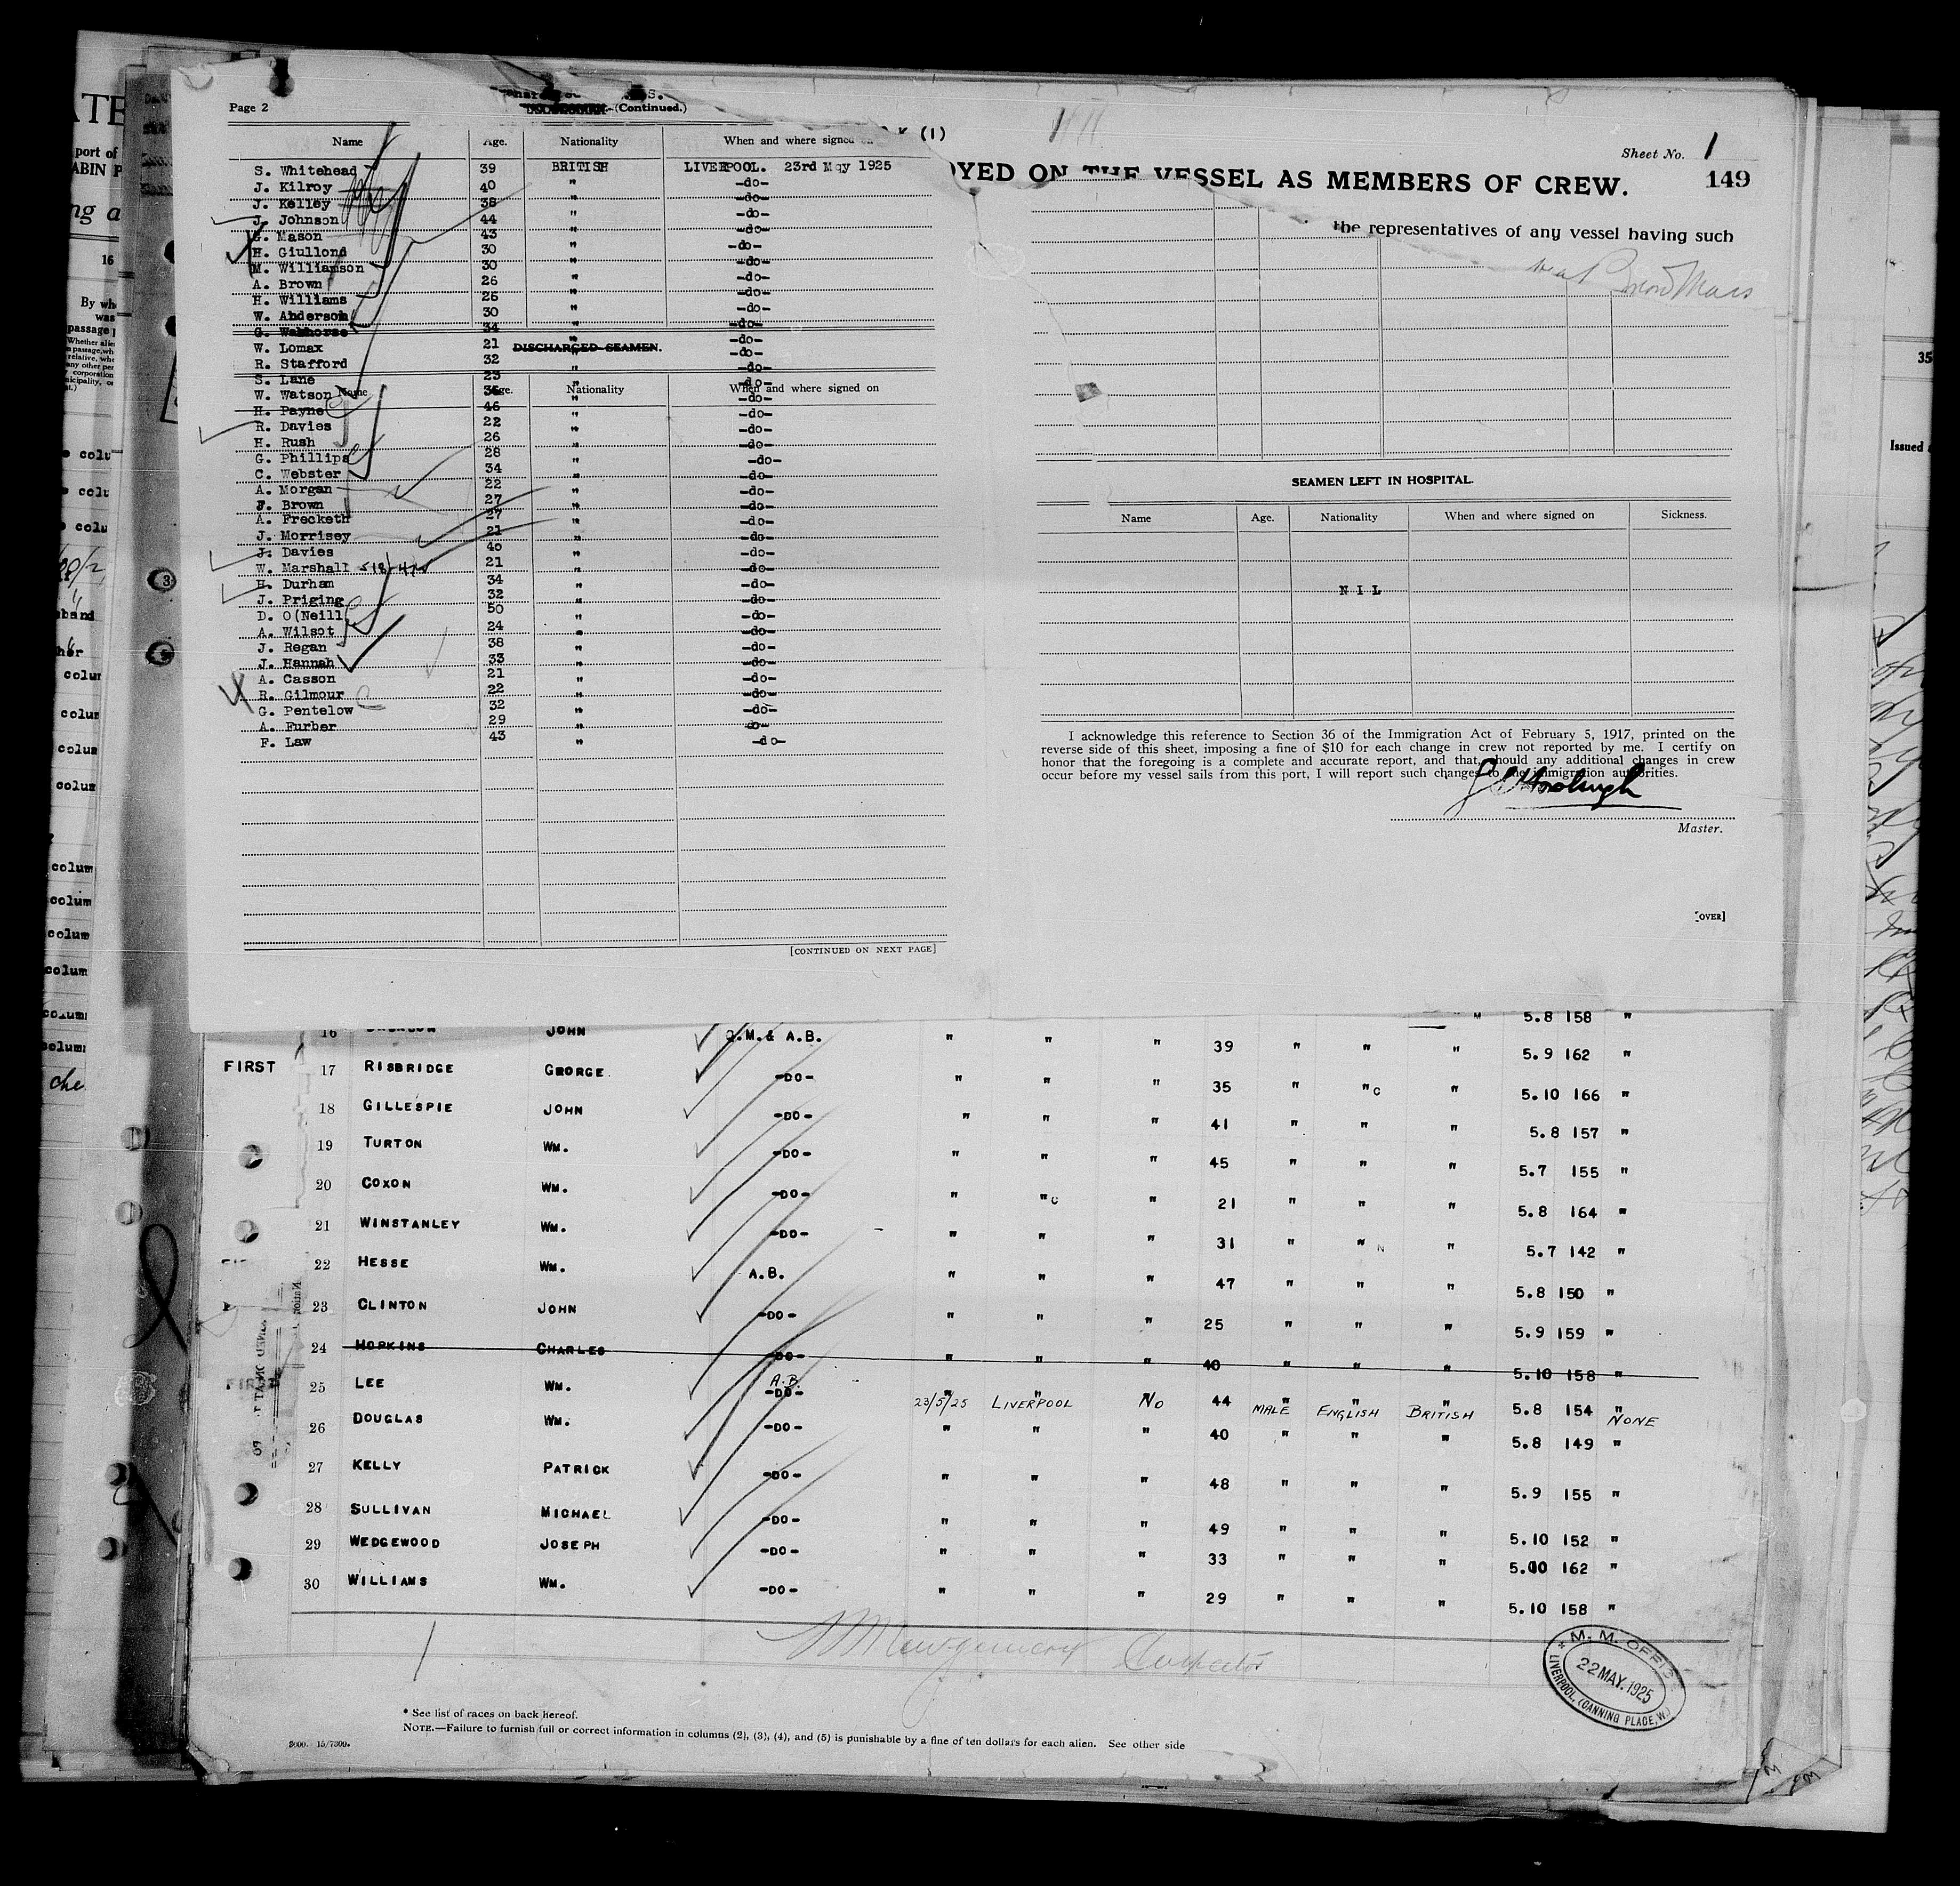 Page 2
(Continued.)
Name Age. Nationality When and where signed on
S. Whitehead 39 BRITISH LIVERPOOL. 23rd May 1925
J. Kilroy 40 " -do-
J. Kelley 38 " -do-
J. Johnson 44 " -do-
G. Mason 43 " -do-
H. Giullond 30 " -do-
M. Williamson 30 " -do-
A. Brown 26 " -do-
H. Williams 26 " -do-
W. Anderson 30 " -do-
G. 34 " -do-
W. Lomax 21 " -do-
DISCHARGED SEAMEN.
R. Stafford 32 " -do-
S. Lane 23 " -do-
Name Age. Nationality When and where signed on
W. Watson " -do-
H. Payne 46 " -do-
R. Davies 22 " -do-
H. Rush 26 " -do-
G. Phillips 28 " -do-
C. Webster 34 " -do-
A. Morgan 22 " -do-
F. Brown 27 " -do-
A. Frecketh 27 " -do-
J. Morrisey 21 " -do-
J. Davies 40 " -do-
W. Marshall 21 " -do-
H. Durham 34 " -do-
J. Priging 32 " -do-
D. O(Neill 50 " -do-
A. Wilsot 24 " -do-
J. Regan 38 " -do-
J. Hannah 33 " -do-
A. Casson 21 " -do-
R. Gilmour 22 " -do-
G. Pentelow 32 " -do-
A. Furber 29 " -do-
F. Law 43 " -do-
[CONTINUED ON NEXT PAGE]
(1)
Sheet No. 1
149
OYED ON THE VESSEL AS MEMBERS OF CREW.
the representatives of any vessel having such
SEAMEN LEFT IN HOSPITAL.
Name Age. Nationality When and where signed on Sickness.
NIL
I acknowledge this reference to Section 36 of the Immigration Act of February 5, 1917, printed on the
reverse side of this sheet, imposing a fine of $10 for each change in crew not reported by me. I certify on
honor that the foregoing is a complete and accurate report, and that should any additional changes in crew
occur before my vessel sails from this port, I will report such changes to the immigration authorities.
Master.
[OVER]
5.8 158 "
16 JOHN Q.M. & A.B. " " " 39 " " " 5.9 162 "
FIRST 17 RISBRIDGE GEORGE. -DO- " " " 35 " "C " 5.10 166 "
18 GILLESPIE JOHN -DO- " " " 41 " " " 5.8 157 "
19 TURTON WM. -DO- " " " 45 " " " 5.7 155 "
20 COXON WM. -DO- " "C " 21 " " " 5.8 164 "
21 WINSTANLEY WM. -DO- " " " 31 " " N " 5.7 142 "
22 HESSE WM. A.B. " " " 47 " " " 5.8 150 "
23 CLINTON JOHN -DO- " " " 25 " " " 5.9 159 "
24 HOPKINS CHARLES -DO- " " " 40 " " " 5.10 158 "
25 LEE WM. A.B. -DO- 23/5/25 LIVERPOOL NO 44 MALE ENGLISH BRITISH 5.8 154 " NONE
26 DOUGLAS WM. -DO- " " " 40 " " " 5.8 149 "
27 KELLY PATRICK -DO- " " " 48 " " " 5.9 155 "
28 SULLIVAN MICHAEL -DO- " " " 49 " " " 5.10 152 "
29 WEDGEWOOD JOSEPH -DO- " " " 33 " " " 5.10 162 "
30 WILLIAMS WM. -DO- " " " 29 " " " 5.10 158 "
M. M. OFFICE
22 MAY. 1925
LIVERPOOL, (CANNING PLACE, W.)
* See list of races on back hereof.
NOTE.—Failure to furnish full or correct information in columns (2), (3), (4), and (5) is punishable by a fine of ten dollars for each alien. See other side